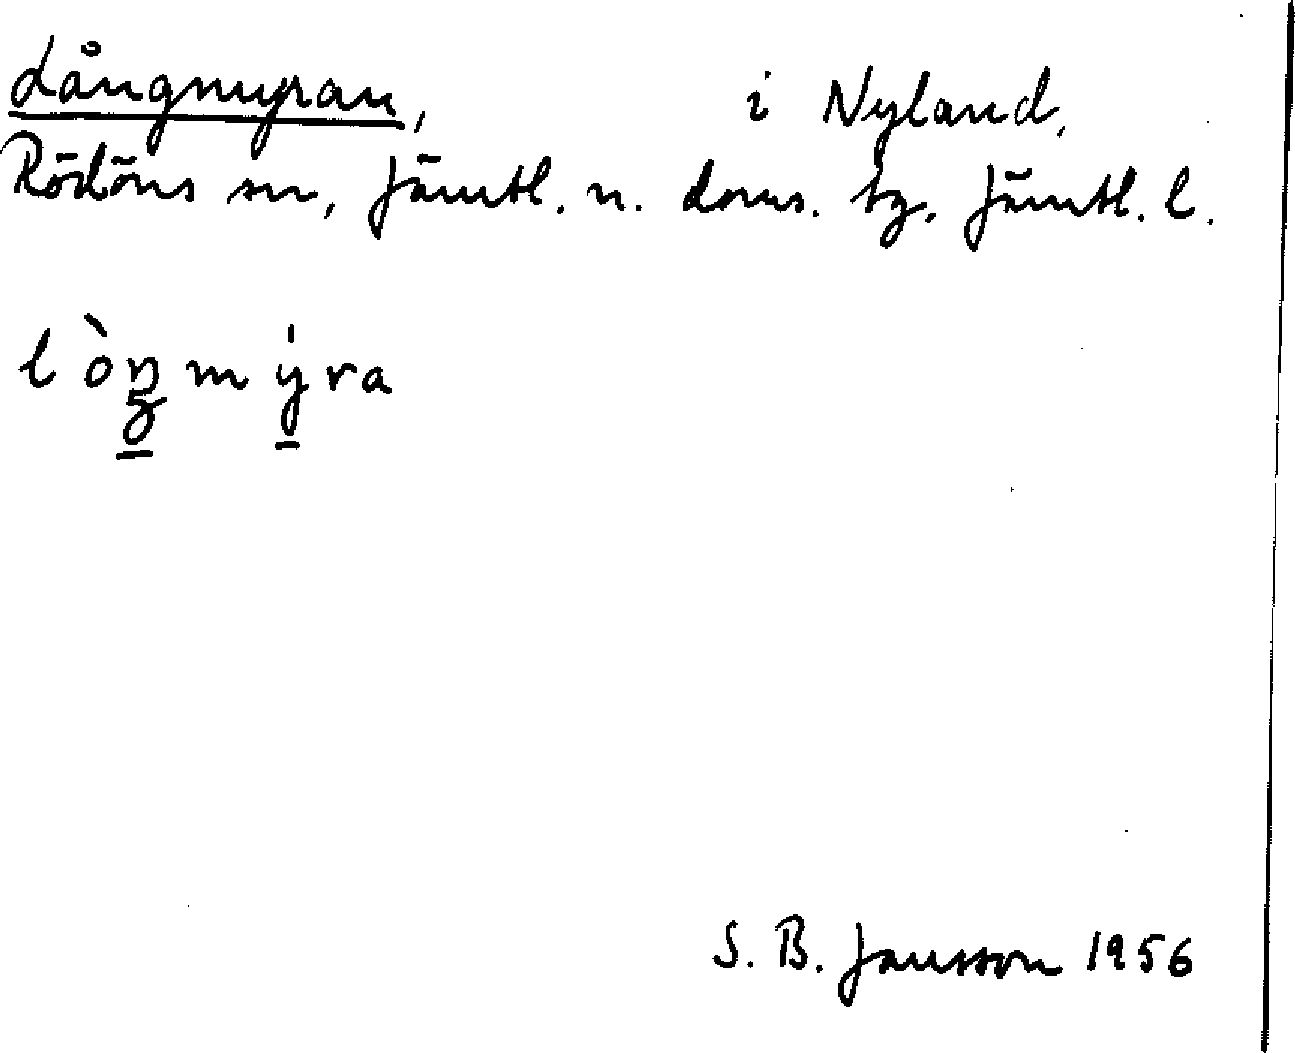 Långmyran, i Nyland,
Rödöns sn, Jämtl. n. doms. tg. Jämtl. l.
lòŋmýra
S. B. Jansson 1956